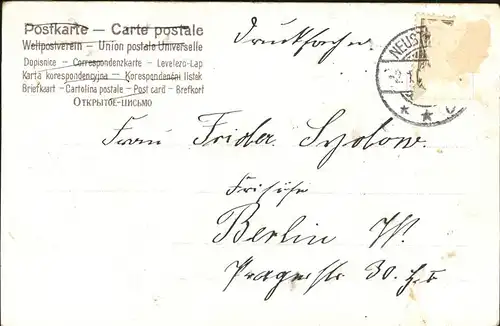 Postkarte — Carte postale
Weltpostverein — Union postale Universelle
Dopisnice — Correspondenzkarte — Levelezo-Lap
Karta korespondencyjna — Korespondenční listek
Briefkaart — Cartolina postale — Post card — Brefkort
ОТКРЫТОЕ-ПИСЬМО
Drucksache
NEUST
-2.1
Frau Frider.
Berlin W.
Pragerstr 30.